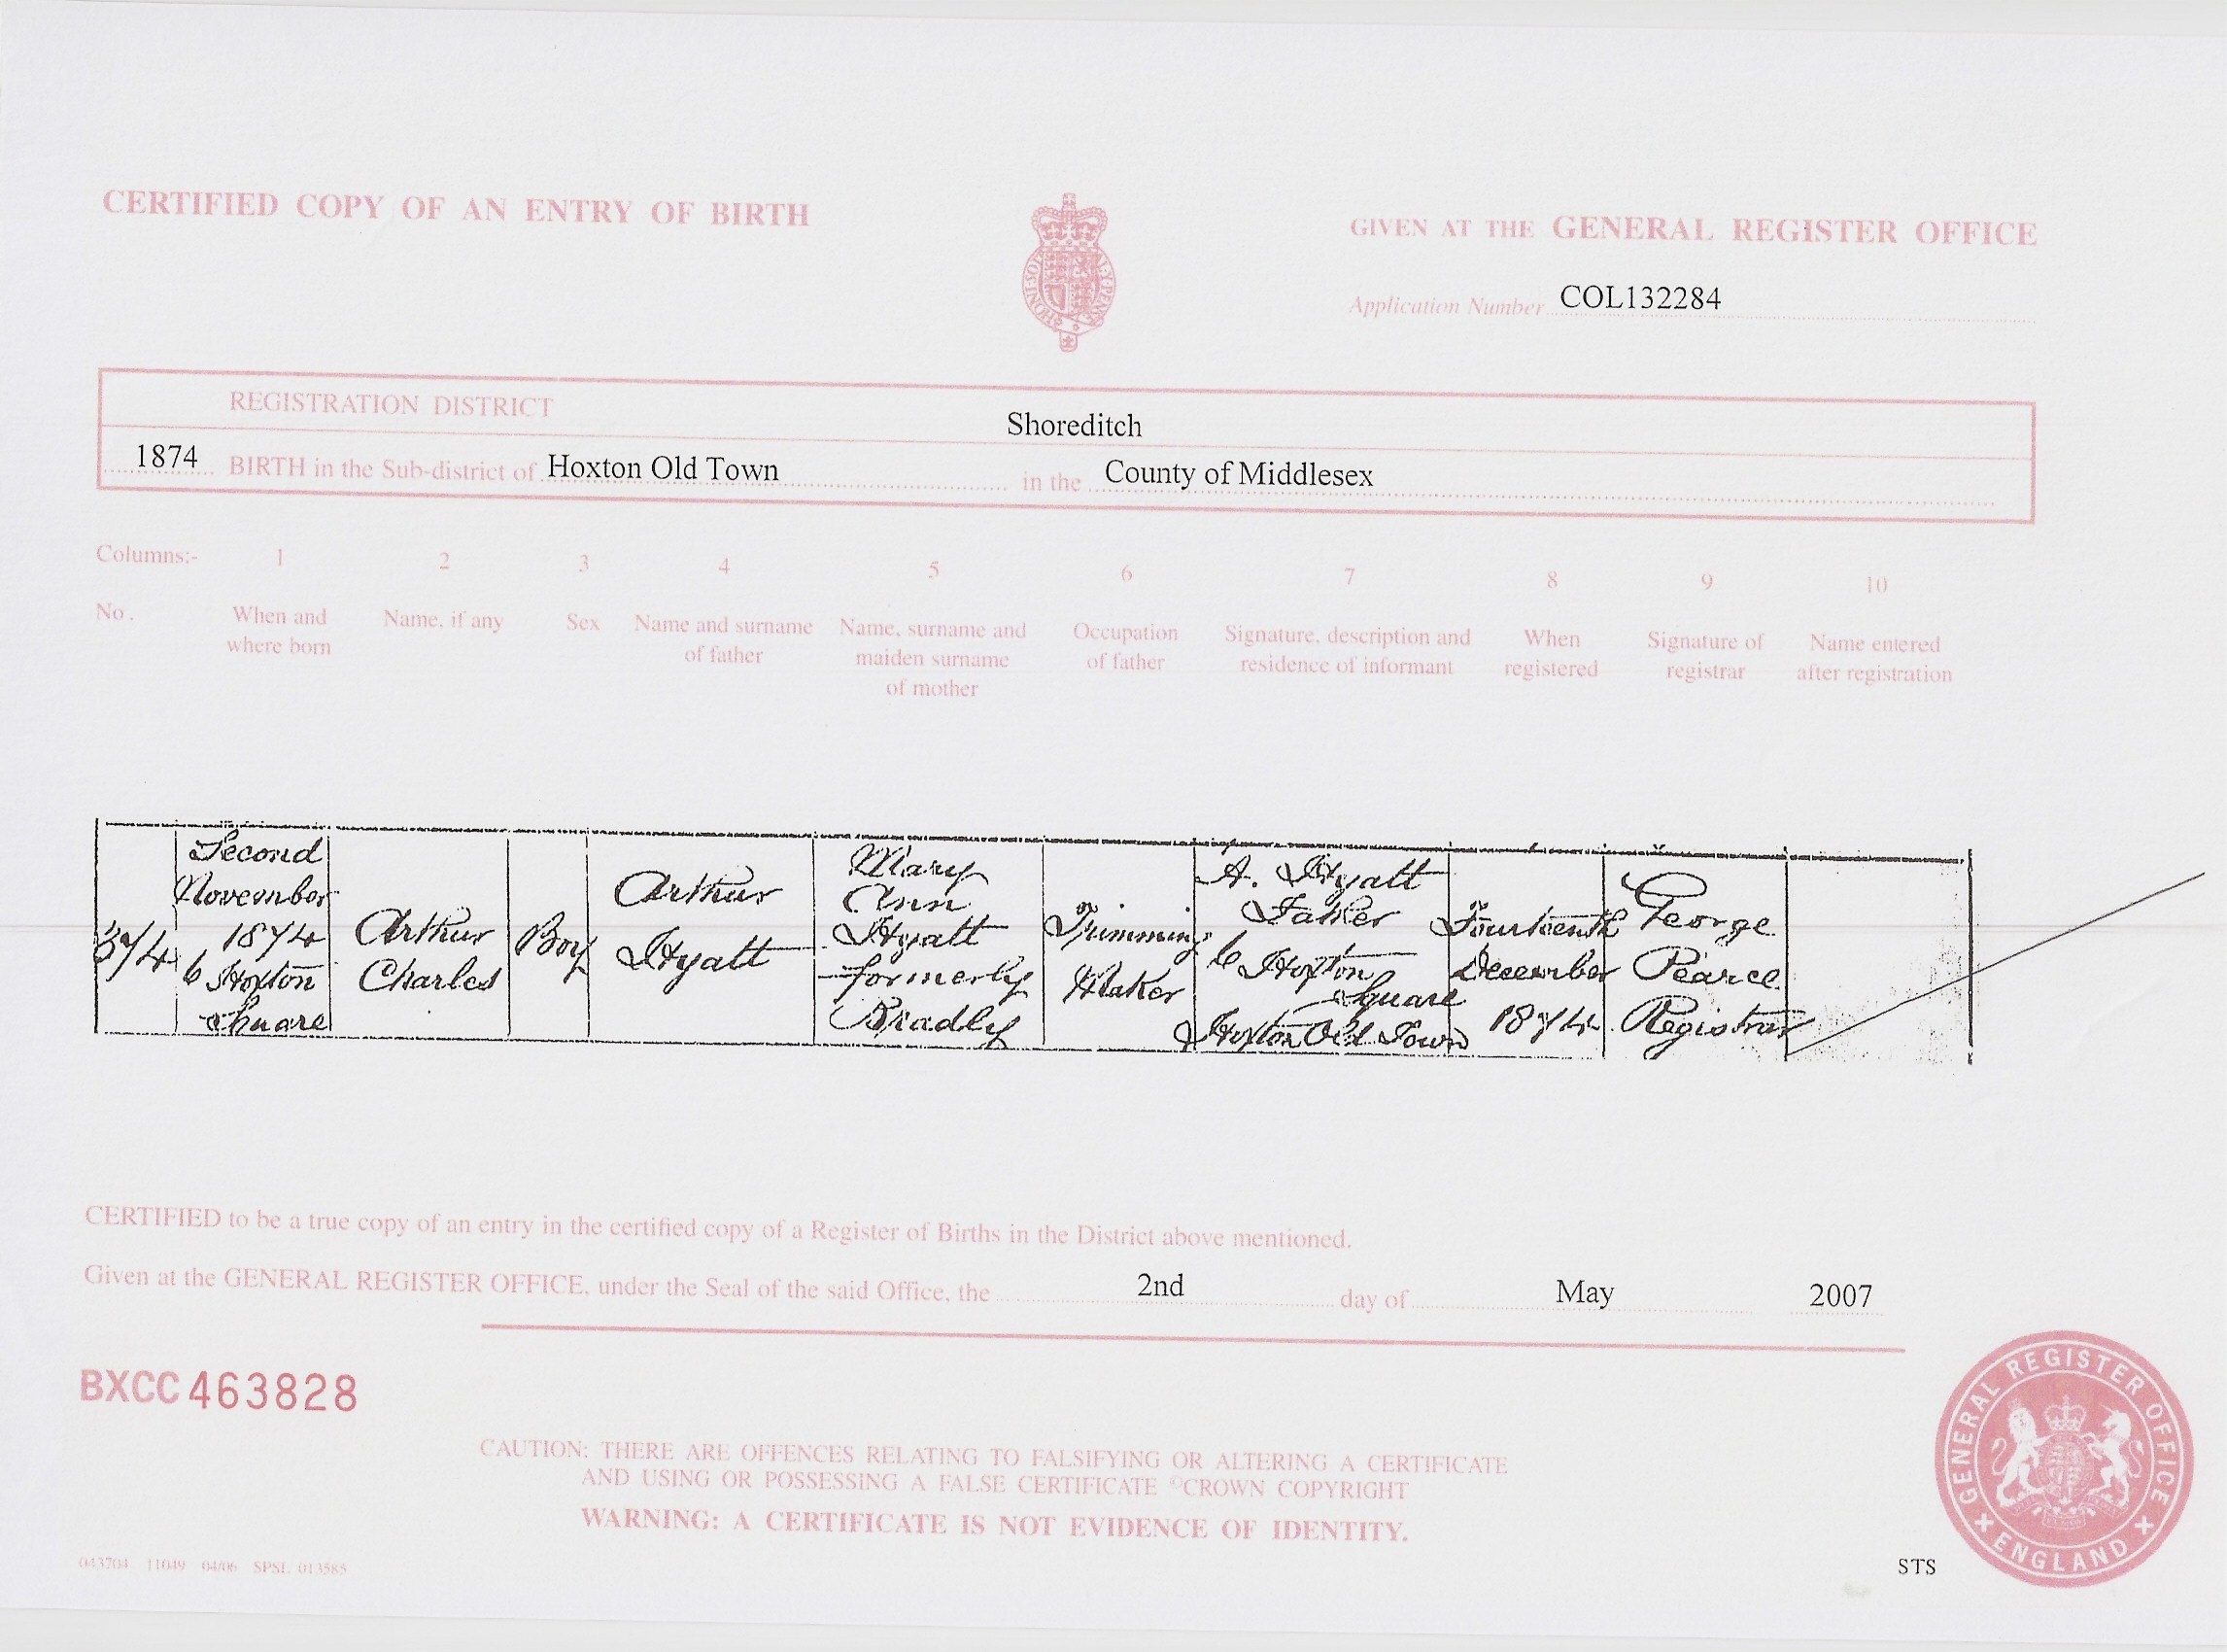 CERTIFIED COPY OF AN ENTRY OF BIRTH
GIVEN AT THE GENERAL REGISTER OFFICE
Application Number COL132284
REGISTRATION DISTRICT
Shoreditch
1874 BIRTH in the Sub-district of Hoxton Old Town in the County of Middlesex
Columns:- 1 2 3 4 5 6 7 8 9 10
No. When and where born
Name, if any
Sex
Name and surname of father
Name, surname and maiden surname of mother
Occupation of father
Signature, description and residence of informant
When registered
Signature of registrar
Name entered after registration
374
Second
November
1874
6 Hoxton
Square
Arthur
Charles
Boy
Arthur
Hyatt
Mary
Ann
Hyatt
formerly
Bradly
Trimming
Maker
A. Hyatt
Father
6 Hoxton
Square
Hoxton Old Town
Fourteenth
December
1874
George
Pearce
Registrar
CERTIFIED to be a true copy of an entry in the certified copy of a Register of Births in the District above mentioned.
Given at the GENERAL REGISTER OFFICE, under the Seal of the said Office, the 2nd day of May 2007
BXCC 463828
CAUTION: THERE ARE OFFENCES RELATING TO FALSIFYING OR ALTERING A CERTIFICATE
AND USING OR POSSESSING A FALSE CERTIFICATE ©CROWN COPYRIGHT
WARNING: A CERTIFICATE IS NOT EVIDENCE OF IDENTITY.
043704 11049 04/06 SPSL 013585
STS
GENERAL REGISTER OFFICE
ENGLAND